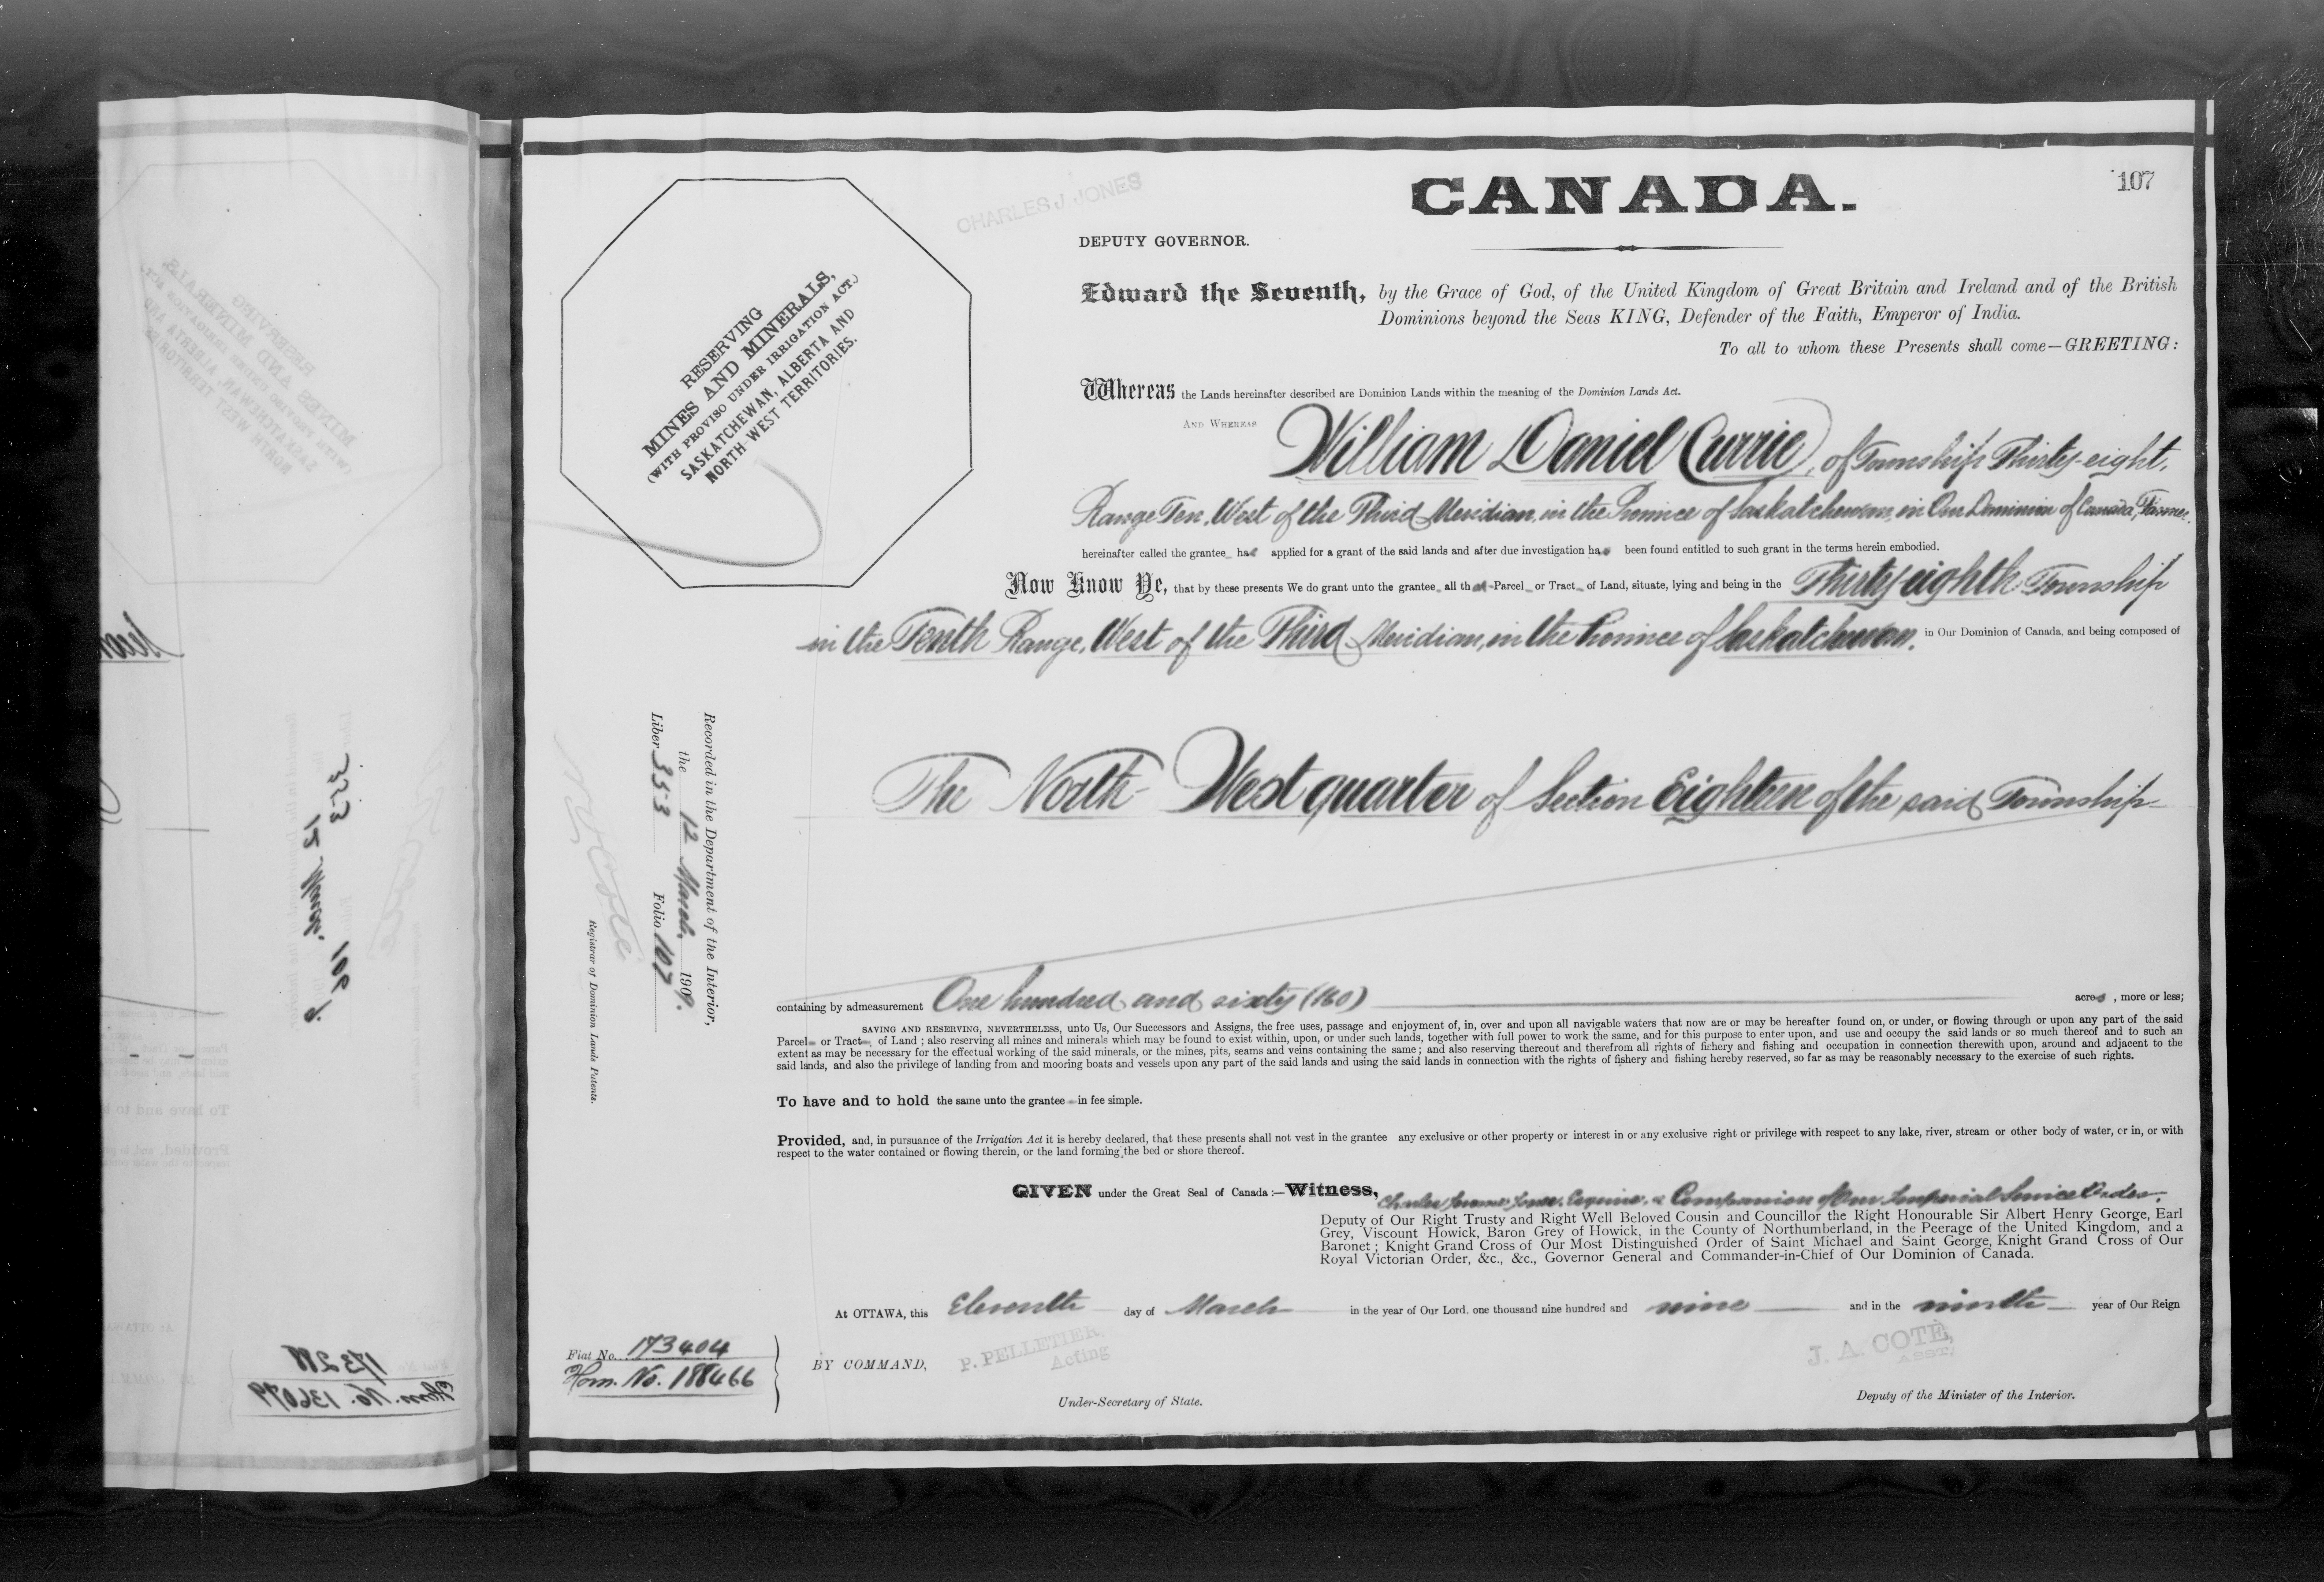 107
CHARLES J JONES
CANADA.
DEPUTY GOVERNOR.
RESERVING
MINES AND MINERALS,
(WITH PROVISO UNDER IRRIGATION ACT.)
SASKATCHEWAN, ALBERTA AND
NORTH WEST TERRITORIES.
Edward the Seventh, by the Grace of God, of the United Kingdom of Great Britain and Ireland and of the British
Dominions beyond the Seas KING, Defender of the Faith, Emperor of India.
To all to whom these Presents shall come—GREETING:
Whereas the Lands hereinafter described are Dominion Lands within the meaning of the Dominion Lands Act.
AND WHEREAS William Daniel Currie, of Township Thirty-eight,
Range Ten, West of the Third Meridian, in the Province of Saskatchewan, in Our Dominion of Canada, Farmer,
hereinafter called the grantee has applied for a grant of the said lands and after due investigation has been found entitled to such grant in the terms herein embodied.
Now Know Ye, that by these presents We do grant unto the grantee all that Parcel or Tract of Land, situate, lying and being in the Thirty eighth Township
in the Tenth Range, West of the Third Meridian, in the Province of Saskatchewan, in Our Dominion of Canada, and being composed of
The North-West quarter of Section Eighteen of the said Township
Recorded in the Department of the Interior,
the 12 March 1909.
Liber 353 Folio 107
N. O. Coté
Registrar of Dominion Lands Patents.
containing by admeasurement One hundred and sixty (160) acres, more or less;
SAVING AND RESERVING, NEVERTHELESS, unto Us, Our Successors and Assigns, the free uses, passage and enjoyment of, in, over and upon all navigable waters that now are or may be hereafter found on, or under, or flowing through or upon any part of the said
Parcel or Tract of Land; also reserving all mines and minerals which may be found to exist within, upon, or under such lands, together with full power to work the same, and for this purpose to enter upon, and use and occupy the said lands or so much thereof and to such an
extent as may be necessary for the effectual working of the said minerals, or the mines, pits, seams and veins containing the same; and also reserving thereout and therefrom all rights of fishery and fishing and occupation in connection therewith upon, around and adjacent to the
said lands, and also the privilege of landing from and mooring boats and vessels upon any part of the said lands and using the said lands in connection with the rights of fishery and fishing hereby reserved, so far as may be reasonably necessary to the exercise of such rights.
To have and to hold the same unto the grantee in fee simple.
Provided, and, in pursuance of the Irrigation Act it is hereby declared, that these presents shall not vest in the grantee any exclusive or other property or interest in or any exclusive right or privilege with respect to any lake, river, stream or other body of water, or in, or with
respect to the water contained or flowing therein, or the land forming the bed or shore thereof.
GIVEN under the Great Seal of Canada:—Witness, Charles Jerome Jones, Esquire, a Companion of Our Imperial Service Order,
Deputy of Our Right Trusty and Right Well Beloved Cousin and Councillor the Right Honourable Sir Albert Henry George, Earl
Grey, Viscount Howick, Baron Grey of Howick, in the County of Northumberland, in the Peerage of the United Kingdom, and a
Baronet; Knight Grand Cross of Our Most Distinguished Order of Saint Michael and Saint George, Knight Grand Cross of Our
Royal Victorian Order, &c., &c., Governor General and Commander-in-Chief of Our Dominion of Canada.
At OTTAWA, this Eleventh day of March in the year of Our Lord, one thousand nine hundred and nine and in the ninth year of Our Reign
Fiat No. 173404
Hom. No. 188466
BY COMMAND,
P. PELLETIER,
Acting
Under-Secretary of State.
J. A. COTÉ,
ASST.
Deputy of the Minister of the Interior.